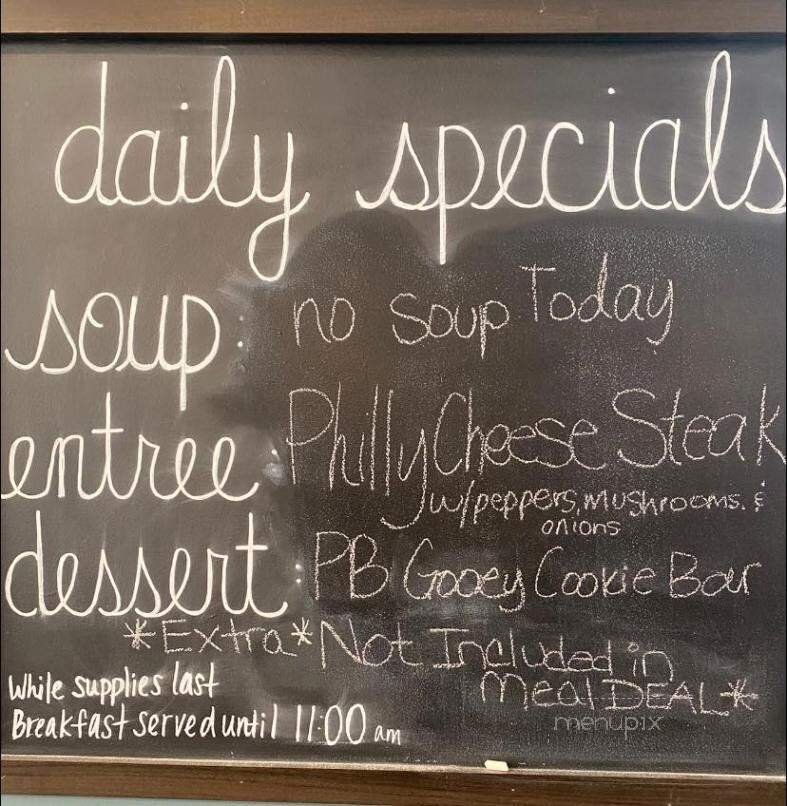 daily specials
soup: no soup Today
entree: Philly Cheese Steak
w/peppers, mushrooms, &
onions
dessert: PB Gooey Cookie Bar
*Extra* Not Included in
meal DEAL*
While supplies last
Breakfast served until 11:00 am
menupix